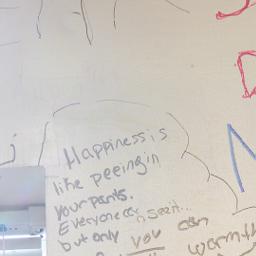 Happiness is
like peeing in
your pants.
Everyone can see it...
but only you can
warmth